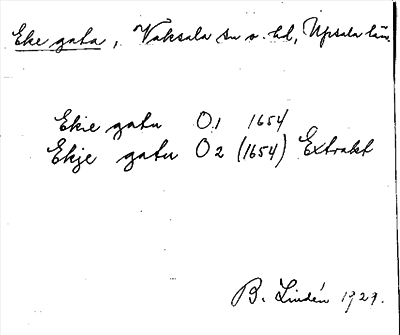 Eke gata, Vaksala sn o. hd, Upsala län.
Ekie gatu O1 1654
Ekje gatu O2 (1654) Extrakt
B. Lindén 1929.